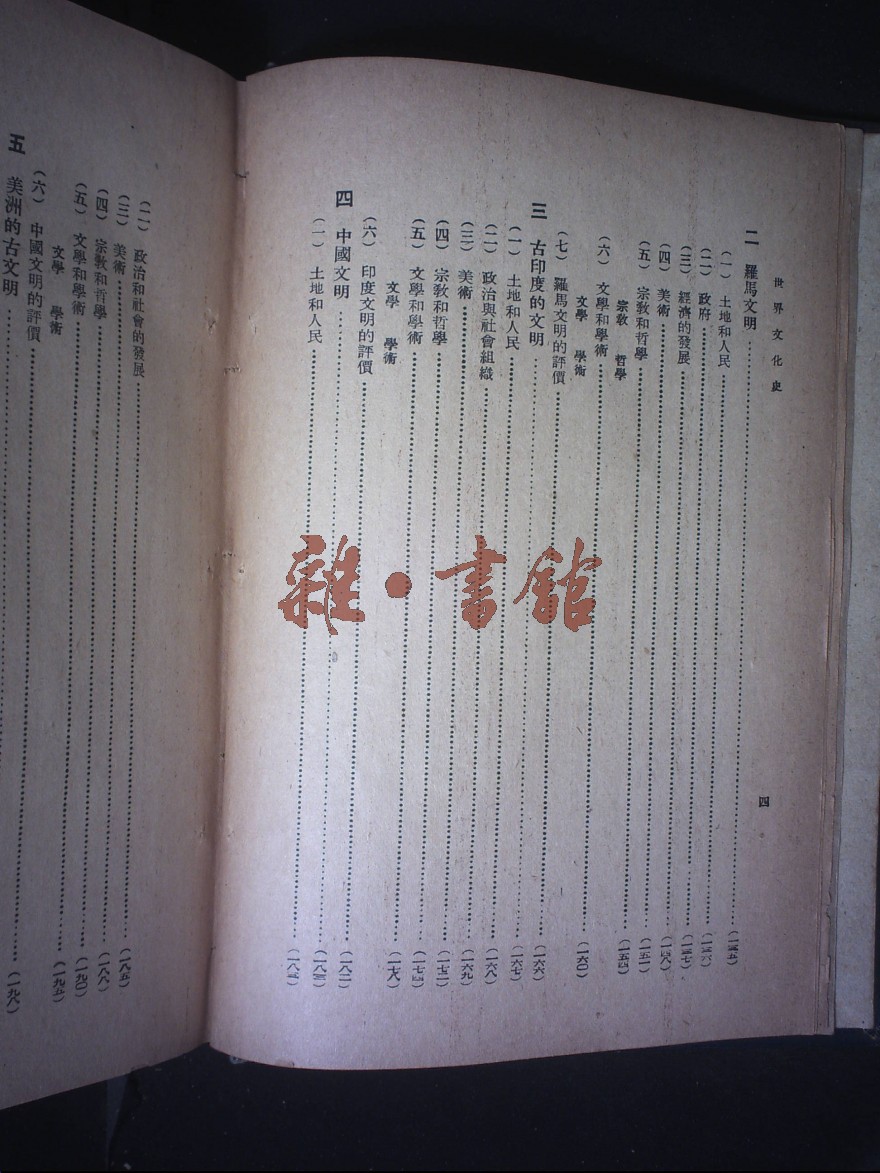 世界文化史
四
二 羅馬文明……(一三五)
(一) 土地和人民……(一三六)
(二) 政府……(一三七)
(三) 經濟的發展……(一四八)
(四) 美術……(一五一)
(五) 宗教和哲學……(一五四)
宗教 哲學
(六) 文學和學術……(一六〇)
文學 學術
(七) 羅馬文明的評價……(一六六)
三 古印度的文明……(一六七)
(一) 土地和人民……(一六八)
(二) 政治與社會組織……(一六九)
(三) 美術……(一七二)
(四) 宗教和哲學……(一七四)
(五) 文學和學術……(一七八)
文學 學術
(六) 印度文明的評價……(一八二)
四 中國文明……(一八三)
(一) 土地和人民……(一八三)
(二) 政治和社會的發展……(一八五)
(三) 美術……(一八八)
(四) 宗教和哲學……(一九〇)
(五) 文學和學術……(一九五)
文學 學術
(六) 中國文明的評價……(一九八)
五 美洲的古文明……
雜·書館